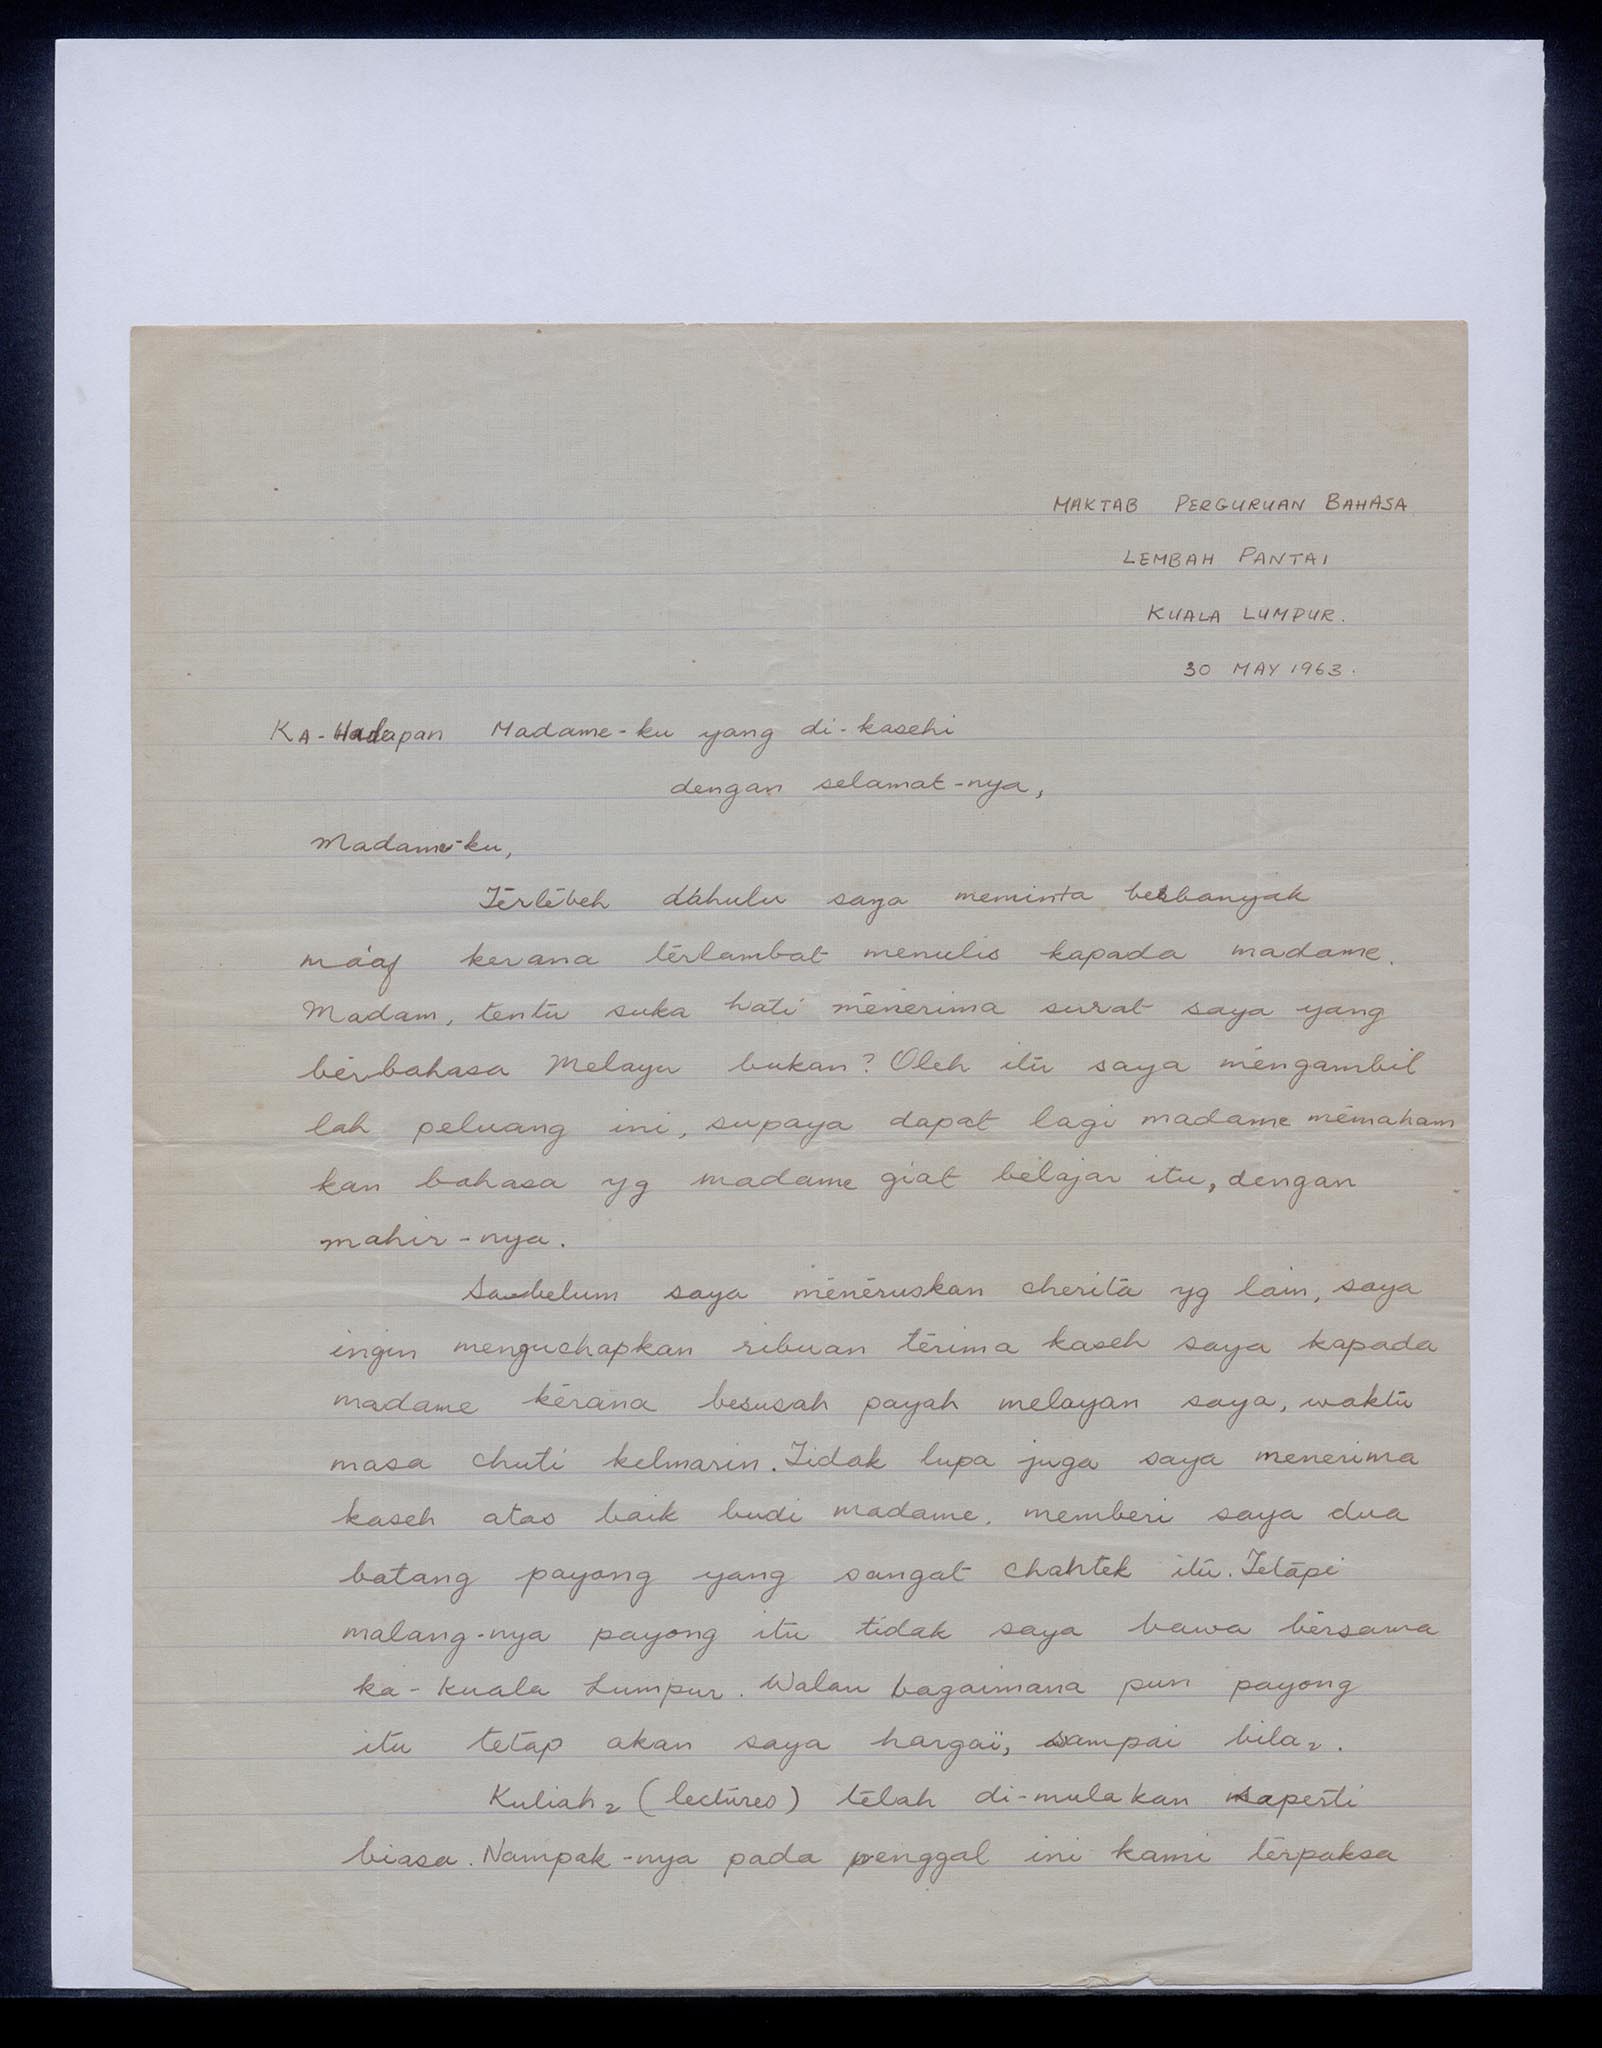 MAKTAB PERGURUAN BAHASA
LEMBAH PANTAI
KUALA LUMPUR.
30 MAY 1963.
KA-Hadapan Madame-ku yang di-kasehi
dengan selamat-nya,
Madame-ku,
Tĕrlĕbeh dahulu saya meminta berbanyak
ma'af kerana tĕrlambat menulis kapada madame.
Madam, tentu suka hati mĕnerima surat saya yang
bĕrbahasa Melayu bukan? Oleh itu saya mĕngambil
lah peluang ini, supaya dapat lagi madame mĕmaham
kan bahasa yg madame giat bĕlajar itu, dengan
mahir-nya.
Sabelum saya mĕnĕruskan cherita yg lain, saya
ingin menguchapkan ribuan tĕrima kaseh saya kapada
madame kĕrana besusah payah melayan saya, waktu
masa chuti kelmarin. Tidak lupa juga saya menerima
kaseh atas baik budi madame, memberi saya dua
batang payong yang sangat chantek itu. Tetapi
malang-nya payong itu tidak saya bawa bĕrsama
ka-Kuala Lumpur. Walau bagaimana pun payong
itu tetap akan saya hargaï, sampai bila2.
Kuliah2 (lectures) tĕlah di-mulakan saperti
biasa. Nampak-nya pada penggal ini kami tĕrpaksa